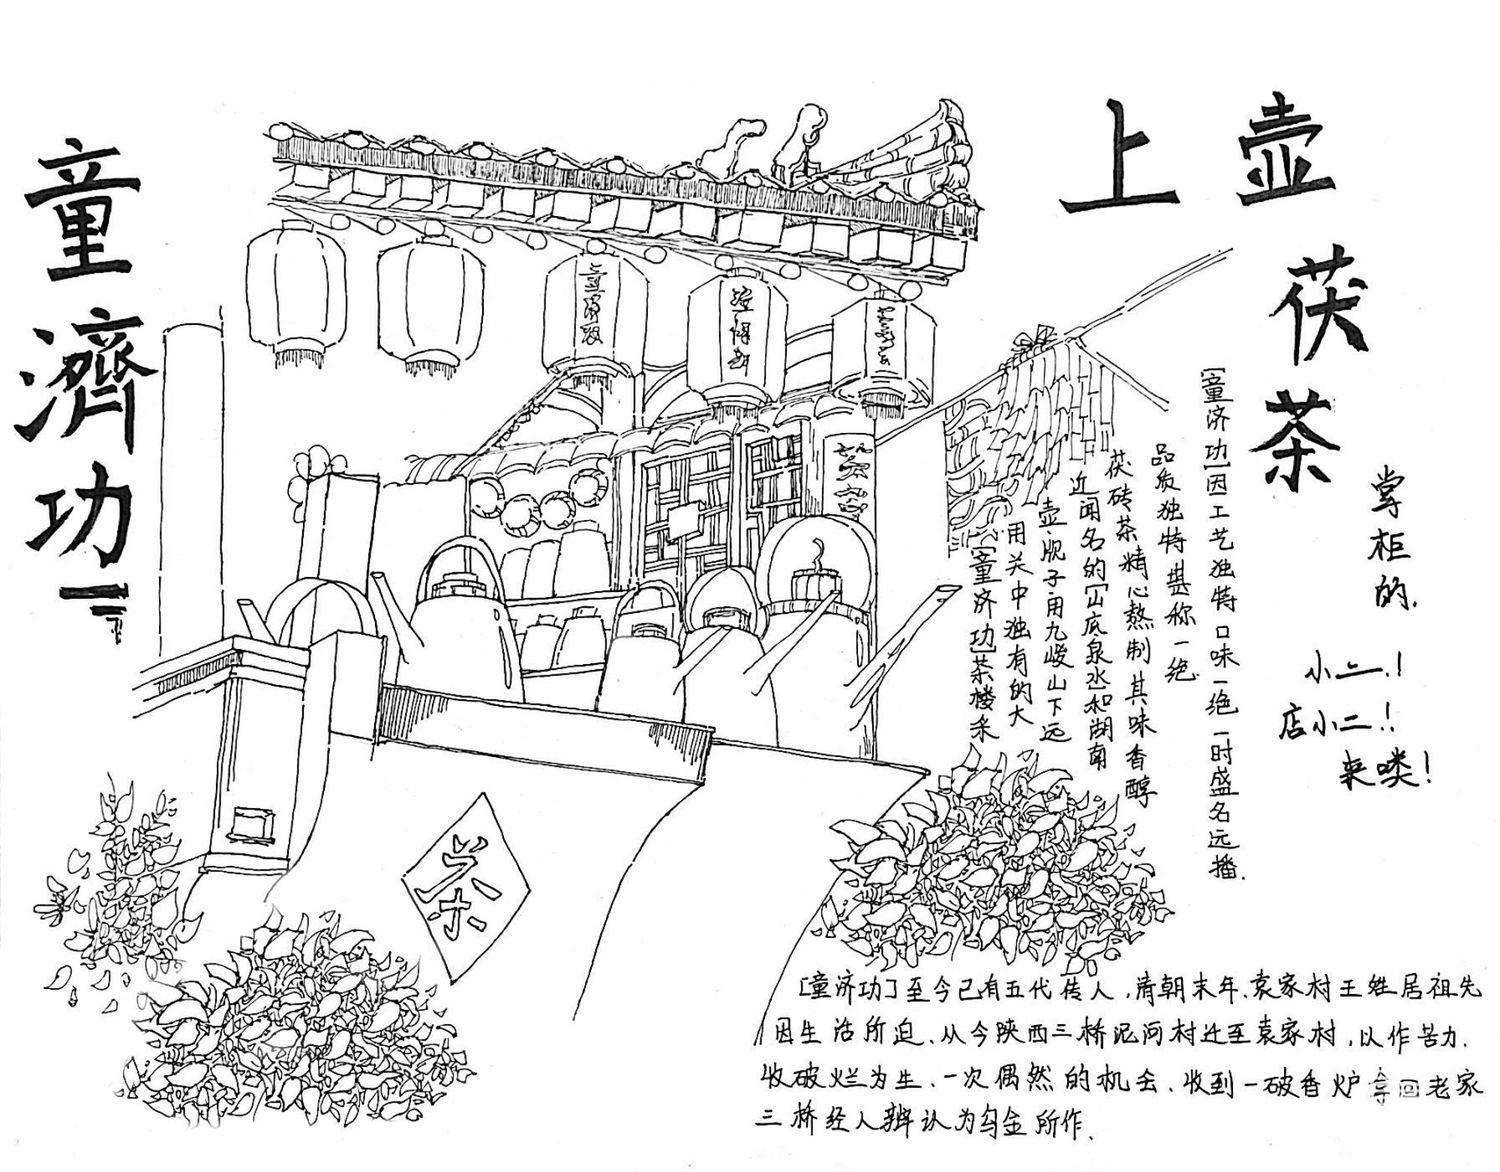 上壶
茯茶
童濟功
掌柜的.
小二!
店小二!!
来喽!
[童济功]茶楼采
用关中独有的大
壶,子用九嵕山下远
近闻名的[山底泉水和湖南
茯砖茶精心熬制其味香醇
品质独特堪称一绝.
[童济功]因工艺独特口味一绝一时盛名远播.
童济功
茶
[童济功]至今已有五代传人,清朝末年、袁家村王姓居祖先
因生活所迫、从今陕西三桥泥河村迁至袁家村,以作苦力.
收破烂为生、一次偶然的机会、收到一破香炉拿回老家
三桥经人辨认为乌金所作.